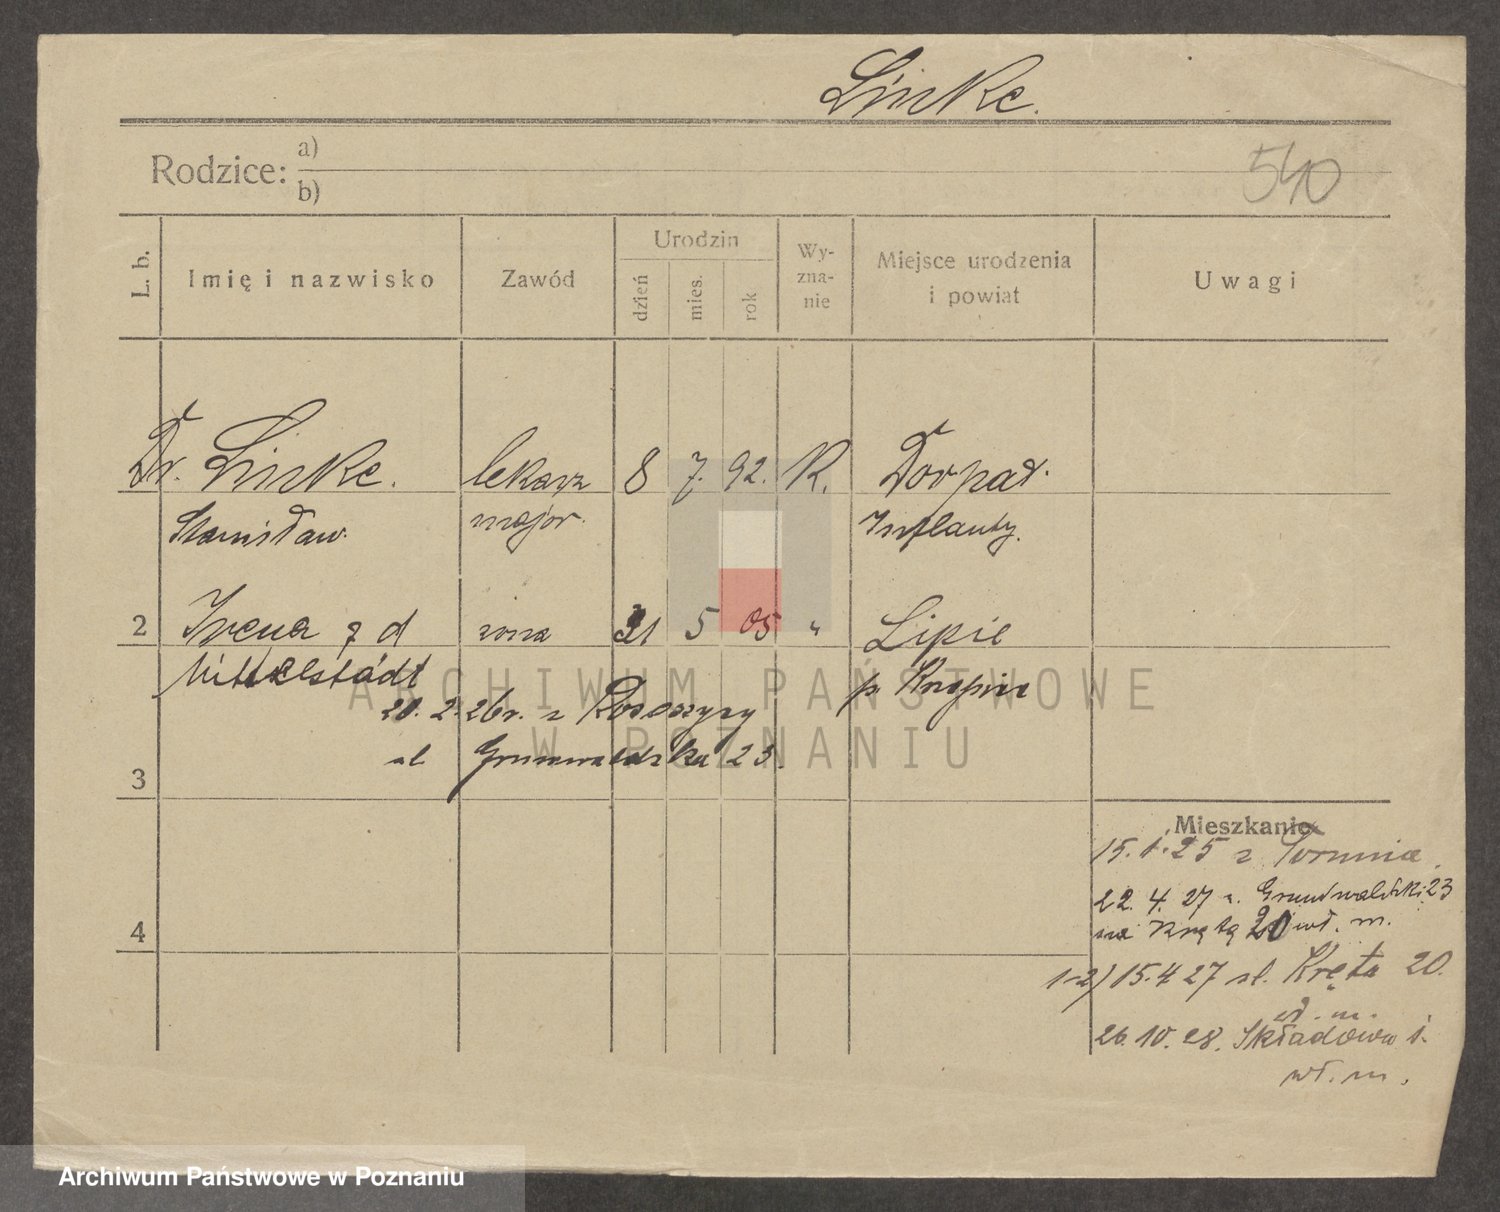 Linke.
540
Rodzice: a)
b)
L. b.
Imię i nazwisko
Zawód
Urodzin
dzień
mies.
rok
Wy-
zna-
nie
Miejsce urodzenia
i powiat
Uwagi
Dr. Linke. lekarz 8 7. 92. K. Dorpat.
Stanisław. major. Inflanty.
2 Irena z d żona 21 5 05 " Lipie
Mittelstädt p.
20. 2. 26r. z
ul Grunwaldzka 23.
3
ARCHIWUM PAŃSTWOWE
W POZNANIU
Mieszkanie
15. 1. 25 z Torunia.
22. 4. 27 z. Grundwaldzki 23
na Krętą 20 wł. m.
4
1-2) 15.4 27 ul. Kręta 20.
wł. m.
26. 10. 28. Składowa 1.
wł. m.
Archiwum Państwowe w Poznaniu